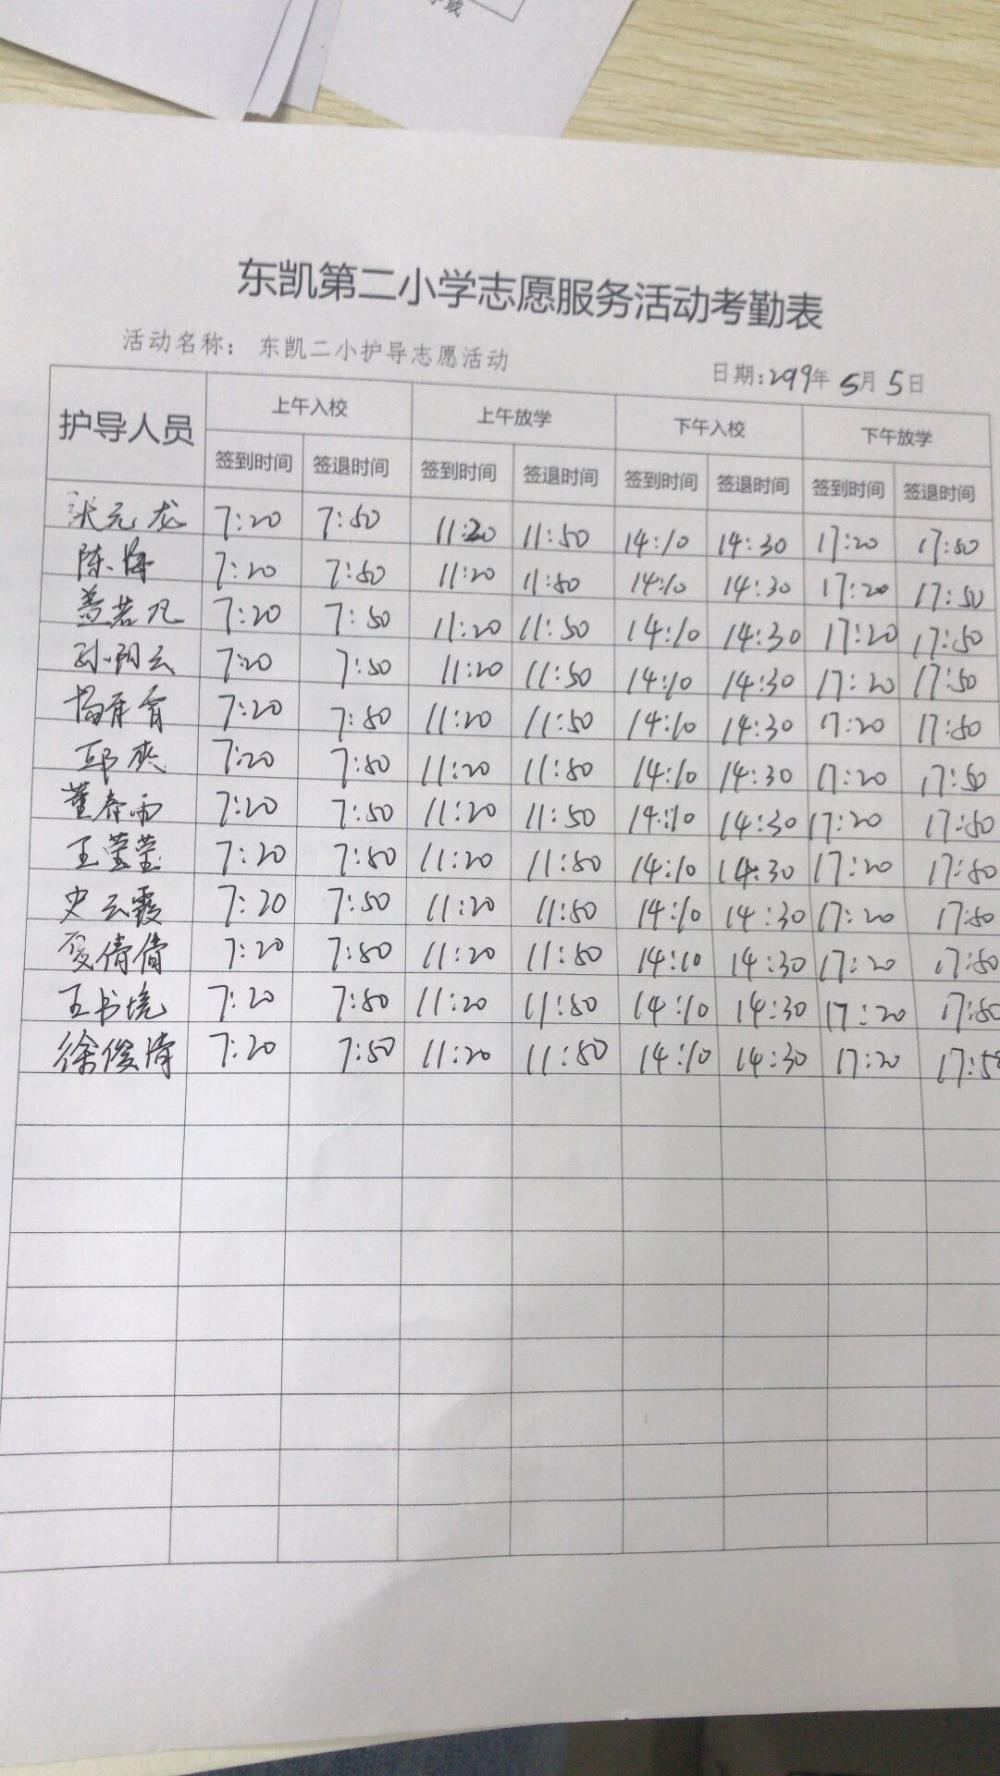 东凯第二小学志愿服务活动考勤表
活动名称: 东凯二小护导志愿活动 日期:2019年 5月 5日
护导人员 上午入校 上午放学 下午入校 下午放学
签到时间 签退时间 签到时间 签退时间 签到时间 签退时间 签到时间 签退时间
张元龙 7:20 7:50 11:20 11:50 14:10 14:30 17:20 17:50
陈海 7:20 7:50 11:20 11:50 14:10 14:30 17:20 17:50
姜若凡 7:20 7:50 11:20 11:50 14:10 14:30 17:20 17:50
孙明云 7:20 7:50 11:20 11:50 14:10 14:30 17:20 17:50
7:20 7:50 11:20 11:50 14:10 14:30 17:20 17:50
邱爽 7:20 7:50 11:20 11:50 14:10 14:30 17:20 17:50
董春雨 7:20 7:50 11:20 11:50 14:10 14:30 17:20 17:50
王莹莹 7:20 7:50 11:20 11:50 14:10 14:30 17:20 17:50
史云霞 7:20 7:50 11:20 11:50 14:10 14:30 17:20 17:50
夏倩倩 7:20 7:50 11:20 11:50 14:10 14:30 17:20 17:50
王书境 7:20 7:50 11:20 11:50 14:10 14:30 17:20 17:50
徐俊清 7:20 7:50 11:20 11:50 14:10 14:30 17:20 17:50